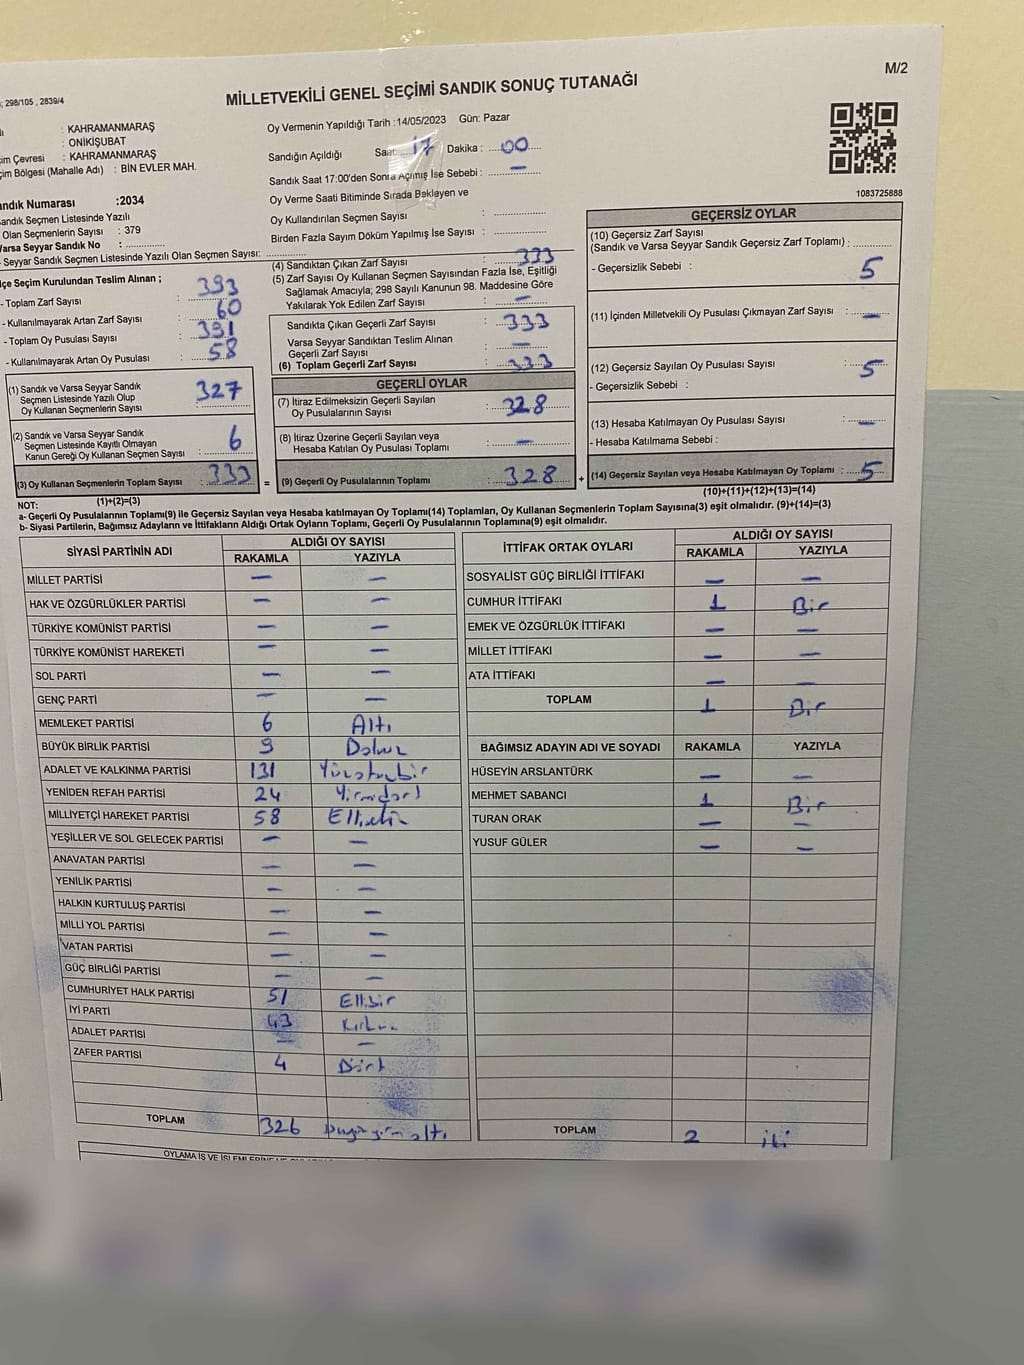 M/2
; 298/105 , 2839/4
MİLLETVEKİLİ GENEL SEÇİMİ SANDIK SONUÇ TUTANAĞI
: KAHRAMANMARAŞ
: ONİKİŞUBAT
im Çevresi : KAHRAMANMARAŞ
im Bölgesi (Mahalle Adı) : BİN EVLER MAH.
andık Numarası :2034
andık Seçmen Listesinde Yazılı
Olan Seçmenlerin Sayısı : 379
Varsa Seyyar Sandık No :
Seyyar Sandık Seçmen Listesinde Yazılı Olan Seçmen Sayısı:
Oy Vermenin Yapıldığı Tarih :14/05/2023 Gün: Pazar
Sandığın Açıldığı Saat: 17 Dakika : 00
Sandık Saat 17:00'den Sonra Açmış İse Sebebi : —
Oy Verme Saati Bitiminde Sırada Bekleyen ve
Oy Kullandırılan Seçmen Sayısı :
Birden Fazla Sayım Döküm Yapılmış İse Sayısı :
1083725888
lçe Seçim Kurulundan Teslim Alınan ;
- Toplam Zarf Sayısı : 393
- Kullanılmayarak Artan Zarf Sayısı : 60
- Toplam Oy Pusulası Sayısı : 391
- Kullanılmayarak Artan Oy Pusulası : 58
(1) Sandık ve Varsa Seyyar Sandık
Seçmen Listesinde Yazılı Olup
Oy Kullanan Seçmenlerin Sayısı : 327
(2) Sandık ve Varsa Seyyar Sandık
Seçmen Listesinde Kayıtlı Olmayan
Kanun Gereği Oy Kullanan Seçmen Sayısı : 6
(3) Oy Kullanan Seçmenlerin Toplam Sayısı : 333 =
(1)+(2)=(3)
(4) Sandıktan Çıkan Zarf Sayısı : 333
(5) Zarf Sayısı Oy Kullanan Seçmen Sayısından Fazla İse, Eşitliği
Sağlamak Amacıyla; 298 Sayılı Kanunun 98. Maddesine Göre
Yakılarak Yok Edilen Zarf Sayısı : —
Sandıkta Çıkan Geçerli Zarf Sayısı : 333
Varsa Seyyar Sandıktan Teslim Alınan
Geçerli Zarf Sayısı : —
(6) Toplam Geçerli Zarf Sayısı : 333
GEÇERLİ OYLAR
(7) İtiraz Edilmeksizin Geçerli Sayılan
Oy Pusulalarının Sayısı : 328
(8) İtiraz Üzerine Geçerli Sayılan veya
Hesaba Katılan Oy Pusulası Toplamı : —
(9) Geçerli Oy Pusulalarının Toplamı : 328 +
GEÇERSİZ OYLAR
(10) Geçersiz Zarf Sayısı
(Sandık ve Varsa Seyyar Sandık Geçersiz Zarf Toplamı) :
- Geçersizlik Sebebi : 5
(11) İçinden Milletvekili Oy Pusulası Çıkmayan Zarf Sayısı : —
(12) Geçersiz Sayılan Oy Pusulası Sayısı : 5
- Geçersizlik Sebebi :
(13) Hesaba Katılmayan Oy Pusulası Sayısı : —
- Hesaba Katılmama Sebebi :
(14) Geçersiz Sayılan veya Hesaba Katılmayan Oy Toplamı : 5
(10)+(11)+(12)+(13)=(14)
NOT:
a- Geçerli Oy Pusulalarının Toplamı(9) ile Geçersiz Sayılan veya Hesaba katılmayan Oy Toplamı(14) Toplamları, Oy Kullanan Seçmenlerin Toplam Sayısına(3) eşit olmalıdır. (9)+(14)=(3)
b- Siyasi Partilerin, Bağımsız Adayların ve İttifakların Aldığı Ortak Oyların Toplamı, Geçerli Oy Pusulalarının Toplamına(9) eşit olmalıdır.
SİYASİ PARTİNİN ADI ALDIĞI OY SAYISI
RAKAMLA YAZIYLA
MİLLET PARTİSİ — —
HAK VE ÖZGÜRLÜKLER PARTİSİ — —
TÜRKİYE KOMÜNİST PARTİSİ — —
TÜRKİYE KOMÜNİST HAREKETİ — —
SOL PARTİ — —
GENÇ PARTİ — —
MEMLEKET PARTİSİ 6 Altı
BÜYÜK BİRLİK PARTİSİ 9 Dokuz
ADALET VE KALKINMA PARTİSİ 131 Yüzotuzbir
YENİDEN REFAH PARTİSİ 24 Yirmidört
MİLLİYETÇİ HAREKET PARTİSİ 58 Ellisekiz
YEŞİLLER VE SOL GELECEK PARTİSİ — —
ANAVATAN PARTİSİ — —
YENİLİK PARTİSİ — —
HALKIN KURTULUŞ PARTİSİ — —
MİLLİ YOL PARTİSİ — —
VATAN PARTİSİ — —
GÜÇ BİRLİĞİ PARTİSİ — —
CUMHURİYET HALK PARTİSİ 51 Ellibir
İYİ PARTİ 43
ADALET PARTİSİ — —
ZAFER PARTİSİ 4 Dört
TOPLAM 326
İTTİFAK ORTAK OYLARI ALDIĞI OY SAYISI
RAKAMLA YAZIYLA
SOSYALİST GÜÇ BİRLİĞİ İTTİFAKI — —
CUMHUR İTTİFAKI 1 Bir
EMEK VE ÖZGÜRLÜK İTTİFAKI — —
MİLLET İTTİFAKI — —
ATA İTTİFAKI — —
TOPLAM 1 Bir
BAĞIMSIZ ADAYIN ADI VE SOYADI RAKAMLA YAZIYLA
HÜSEYİN ARSLANTÜRK — —
MEHMET SABANCI 1 Bir
TURAN ORAK — —
YUSUF GÜLER — —
TOPLAM 2 iki